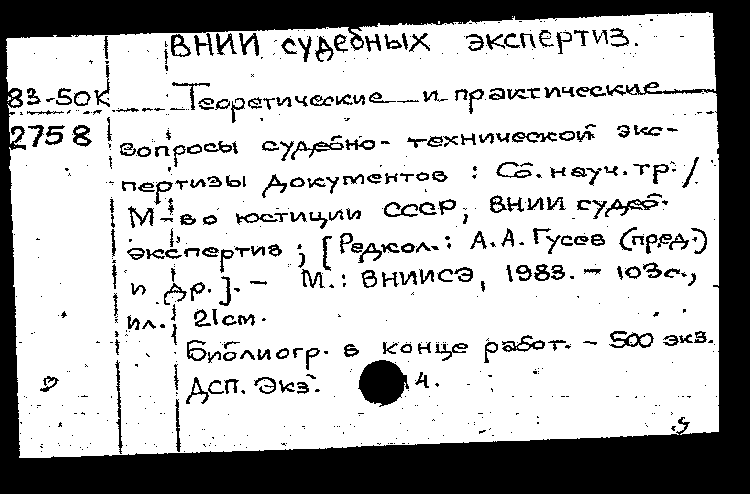 ВНИИ судебных экспертиз.
83-50К Теоретические и практические
2758 вопросы судебно-технической экс-
пертизы документов : Сб. науч. тр. /
М-во юстиции СССР, ВНИИ судеб.
экспертиз ; [Редкол.: А.А. Гусев (пред.)
и др.]. - М.: ВНИИСЭ, 1983. - 103с.,
ил.; 21см.
Библиогр. в конце работ. - 500 экз.
ДСП. Экз. 14.